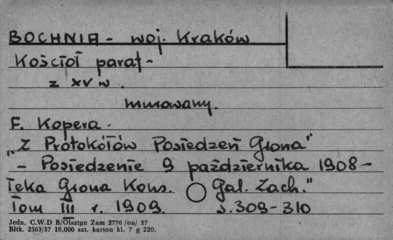 BOCHNIA - woj. Kraków
Kościoł paraf -
z XV w.
murowany.
F. Kopera -
„Z Protokółów Posiedzeń Grona"
- Posiedzenie 9 października 1908 -
Teka Grona Kons. Gal. Zach."
Tom III r. 1909. s. 309-310
Jedn. C.W.D B/Olsztyn Zam 2776/on/57
Bltk. 2563/57 10.000 szt. karton kl. 7 g 220.